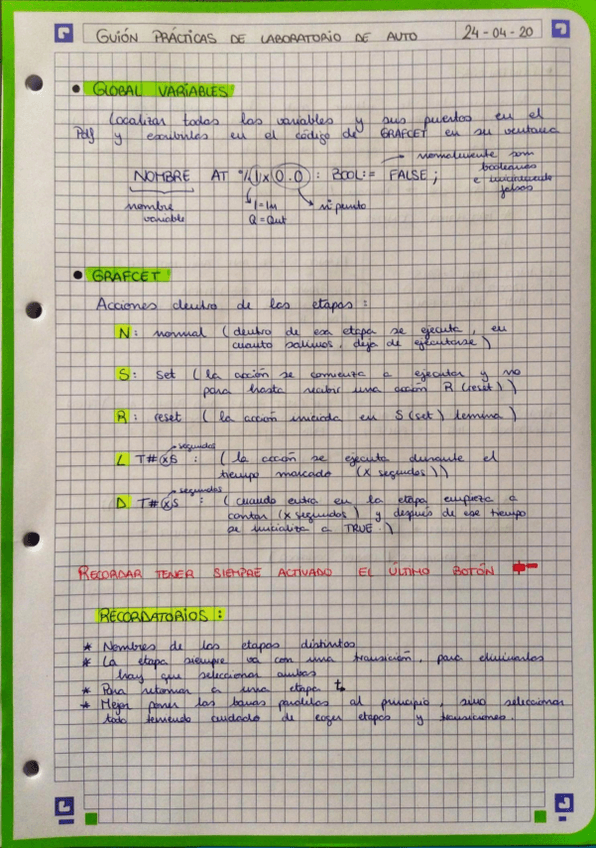 GUIÓN PRÁCTICAS DE LABORATORIO DE AUTO 24-04-20
GLOBAL VARIABLES
Localizar todas las variables y sus puertos en el
Pdf y escribirlos en el código de GRAFCET en su ventana
NOMBRE AT %(I)x(0.0): BOOL:= FALSE;
normalmente son
booleanas
e inicialmente
falsos
nombre
variable
I=In
Q=Out
nº punto
GRAFCET
Acciones dentro de las etapas:
N: normal (dentro de esa etapa se ejecuta, en
cuanto salimos, deja de ejecutarse)
S: set (la acción se comienza a ejecutar y no
para hasta recibir una acción R (reset))
R: reset (la acción iniciada en S (set) termina)
segundos
L T#(x)S : (la acción se ejecuta durante el
tiempo marcado (x segundos))
segundos
D T#(x)S : (cuando entra en la etapa empieza a
contar (x segundos) y después de ese tiempo
se inicializa a TRUE.)
RECORDAR TENER SIEMPRE ACTIVADO EL ÚLTIMO BOTÓN
RECORDATORIOS:
* Nombres de las etapas distintos
* La etapa siempre va con una transición, para eliminarlas
hay que seleccionar ambas
* Para retornar a una etapa
* Mejor poner las barras paralelas al principio, sino seleccionar
todo teniendo cuidado de coger etapas y transiciones.